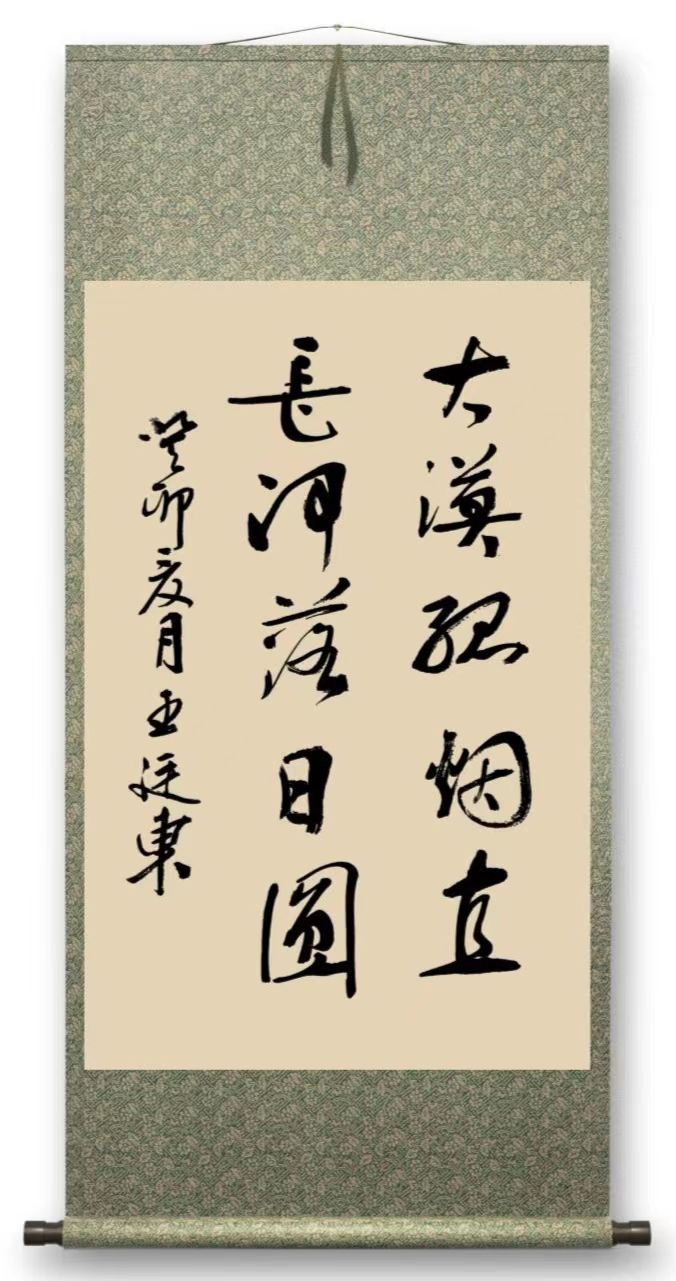 大漠孤烟直
長河落日圆
癸卯亥月王廷東